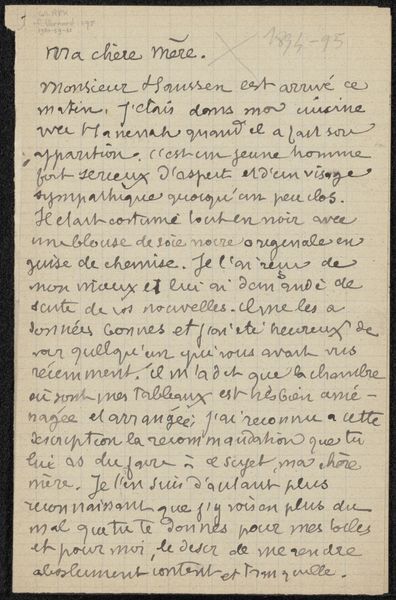 1894-95
Ma chère Mère.
Monsieur Haussen est arrivé ce
matin. J'étais dans ma cuisine
avec Hanenah quand il a fait son
apparition. C'est un jeune homme
fort serieux d'aspect et d'un visage
sympathique quoiqu'un peu clos.
Il etait costumé tout en noir avec
une blouse de soie noire originale en
guise de chemise. Je l'ai reçu de
mon mieux et lui ai demandé de
suite de vos nouvelles. il me les a
données bonnes et j'ai été heureux de
voir quelqu'un qui vous avait vus
récemment. il m'a dit que la chambre
où sont mes tableaux est très bien amé-
nagée et arrangée; j'ai reconnu a cette
description la recommandation que tu
lui as du faire à ce sujet, ma chère
mère. Je t'en suis d'autant plus
reconnaissant que j'y vois en plus du
mal que tu te donnes pour mes toiles
et pour moi, le desir de me rendre
absolument content et tranquille.